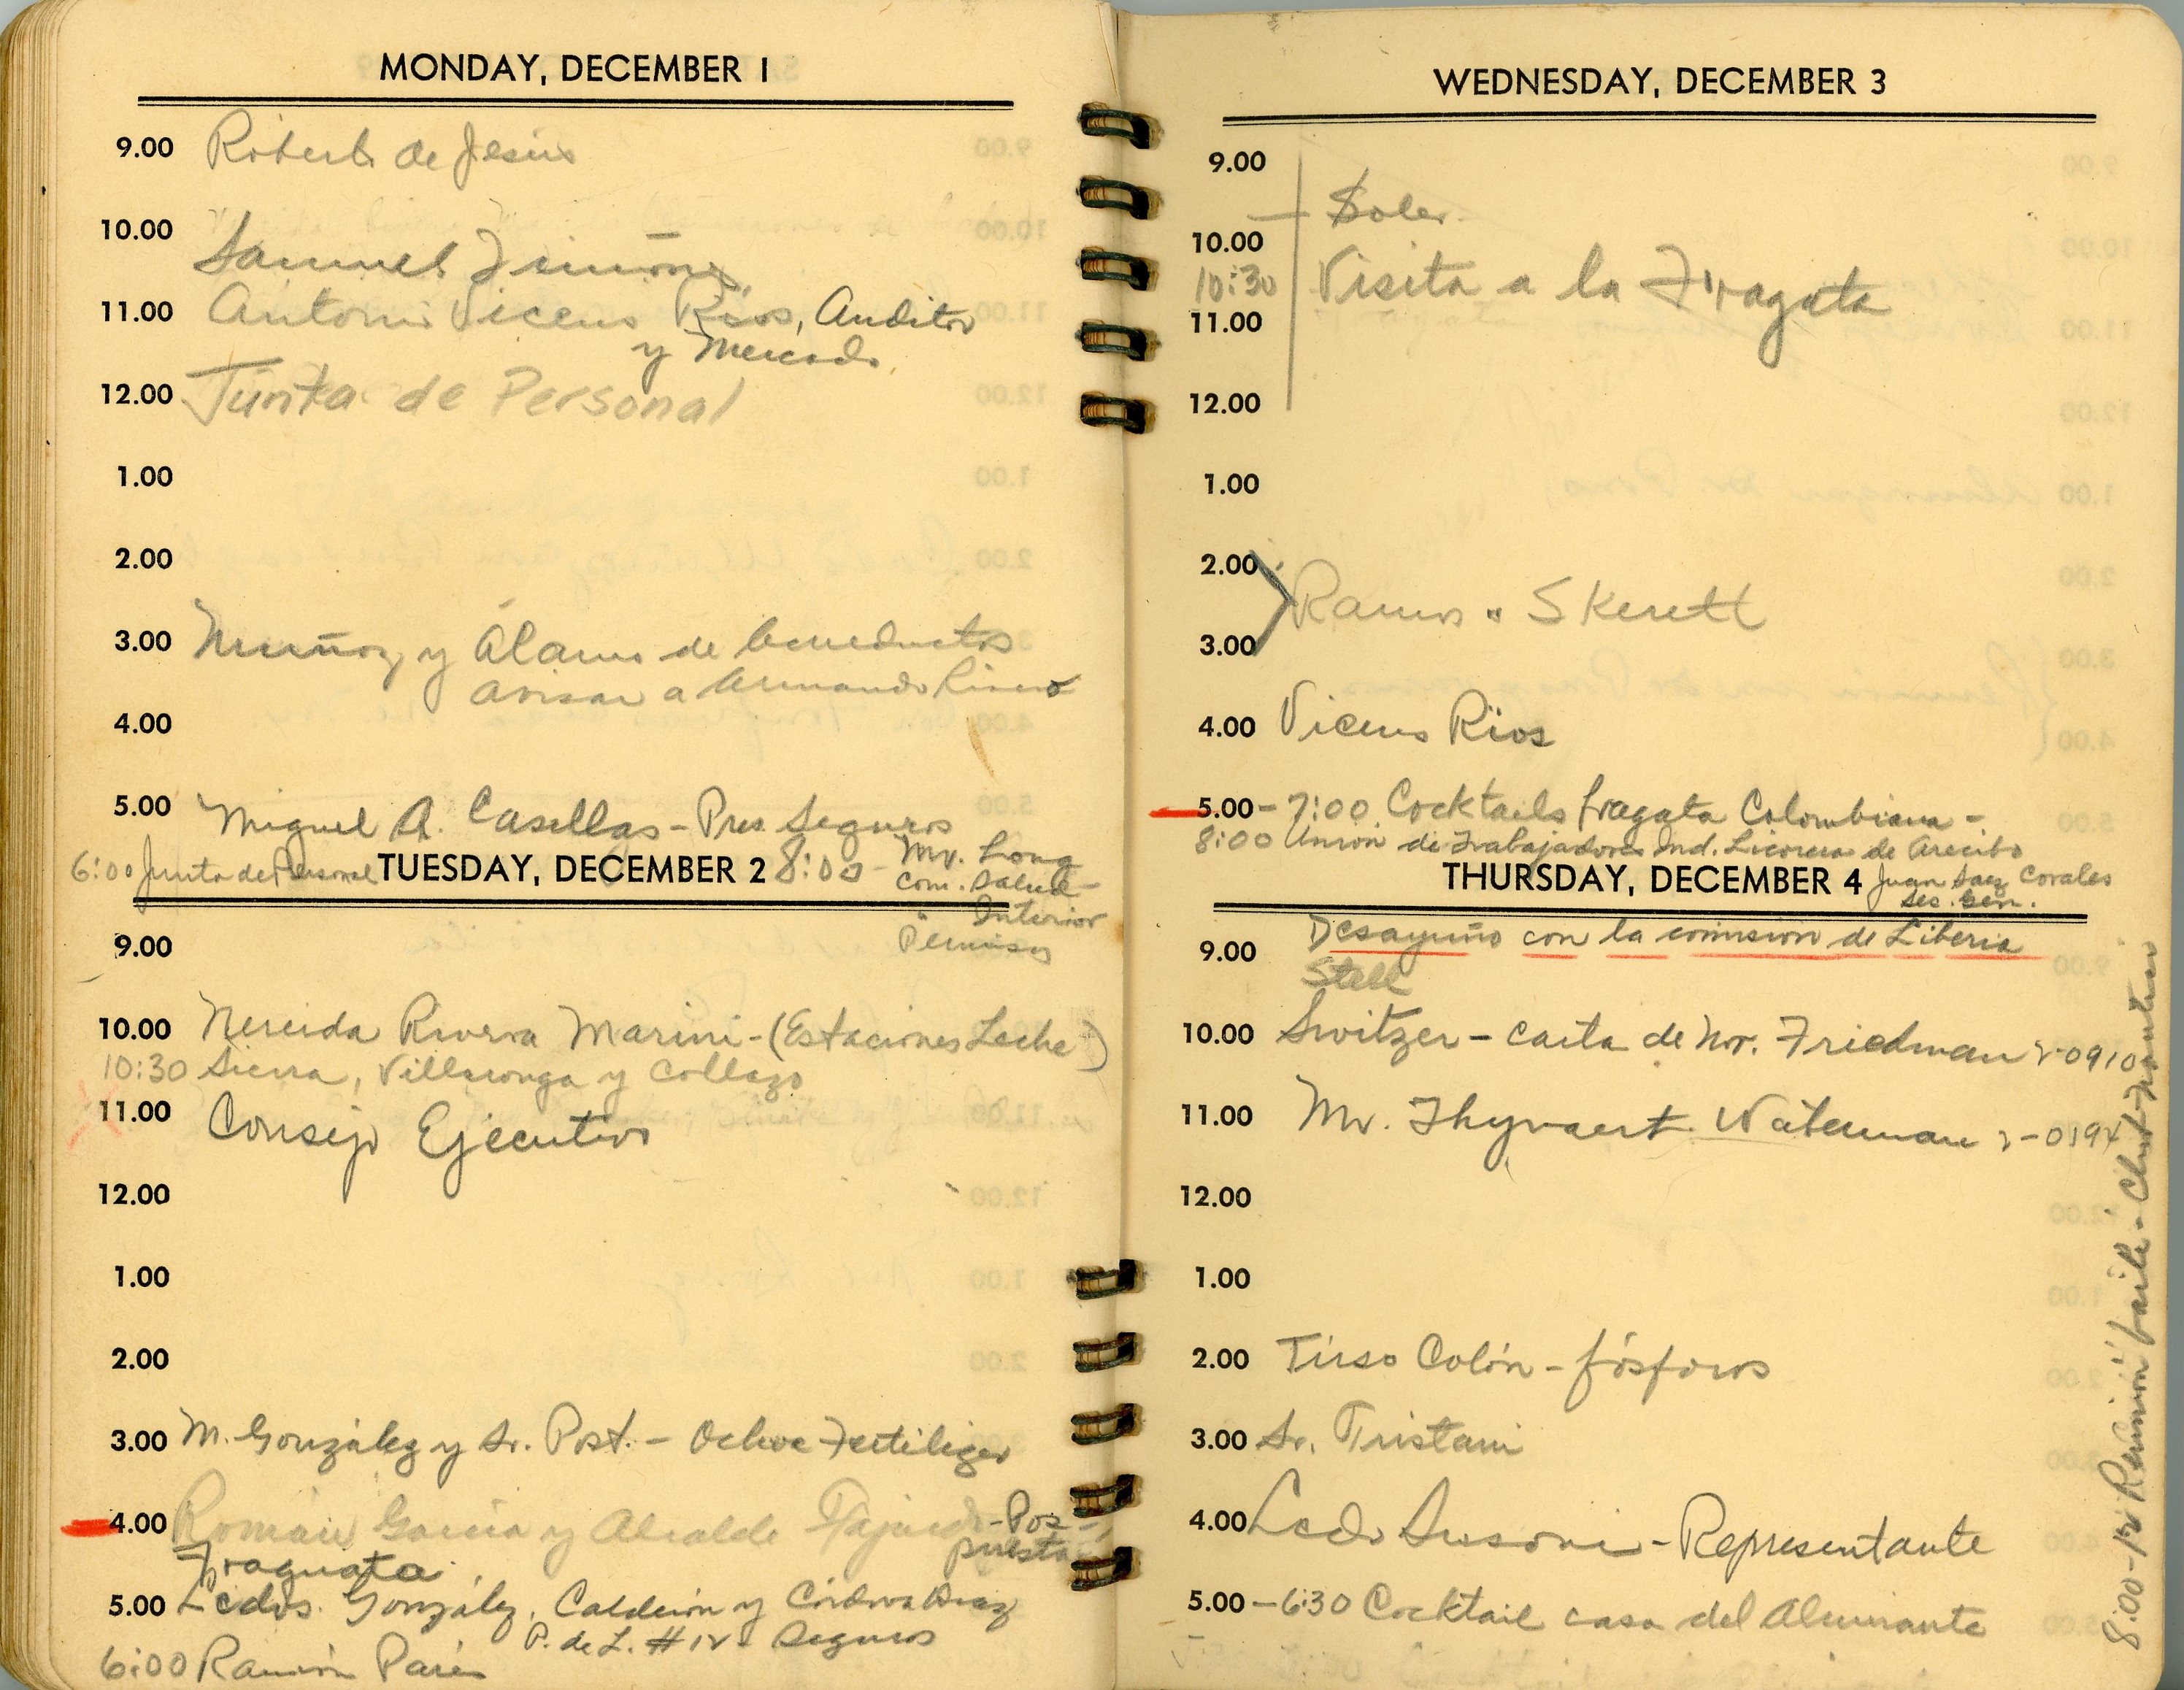 MONDAY, DECEMBER 1
9.00 Roberto de Jesús
10.00
Samuel
11.00 Antonio Vicens Ríos, Auditor
y Mercado
12.00 Junta de Personal
1.00
2.00
3.00 Muñoz y Álamo de
avisar a Armando Rivera
4.00
5.00 Miguel A. Casellas - Pres. Seguros
6:00 Junta de Personal
TUESDAY, DECEMBER 2
8:00 - Mr. Long
Com. Salud -
" Interior
Permisos
9.00
10.00 Nereida Rivera Marini - (Estaciones Leche)
10:30 Sierra, Villaronga y Collazo
11.00 Consejo Ejecutivo
12.00
1.00
2.00
3.00 M. González y Sr. Post. - Ochoa Fertilizer
4.00 Román García y Alcalde Fajardo - Pos-
puesta
Fraguata
5.00 Lcdos. González, Calderón y Córdova Díaz
P. de L. #12 - Seguros
6:00 Ramón
WEDNESDAY, DECEMBER 3
9.00
Soler
10.00
10:30 Visita a la Fragata
11.00
12.00
1.00
2.00
Ramos " Skerett
3.00
4.00 Vicens Ríos
5.00 - 7:00 Cocktails fragata Colombiana -
8:00 Unión de Trabajadores Ind. Licorera de Arecibo
Juan Saez Corales
Sec. Gen.
THURSDAY, DECEMBER 4
9.00 Desayuno con la comision de Liberia
Stell
10.00 Switzer - carta de Mr. Friedman 2-0910
11.00 Mr. Waterman 2-0194
12.00
1.00
2.00 Tirso Colón - fósforos
3.00 Sr. Tristani
4.00 Lcdo Susoni - Representante
5.00 - 6:30 Cocktail casa del Almirante
8:00-12 Reunión "baile - Club